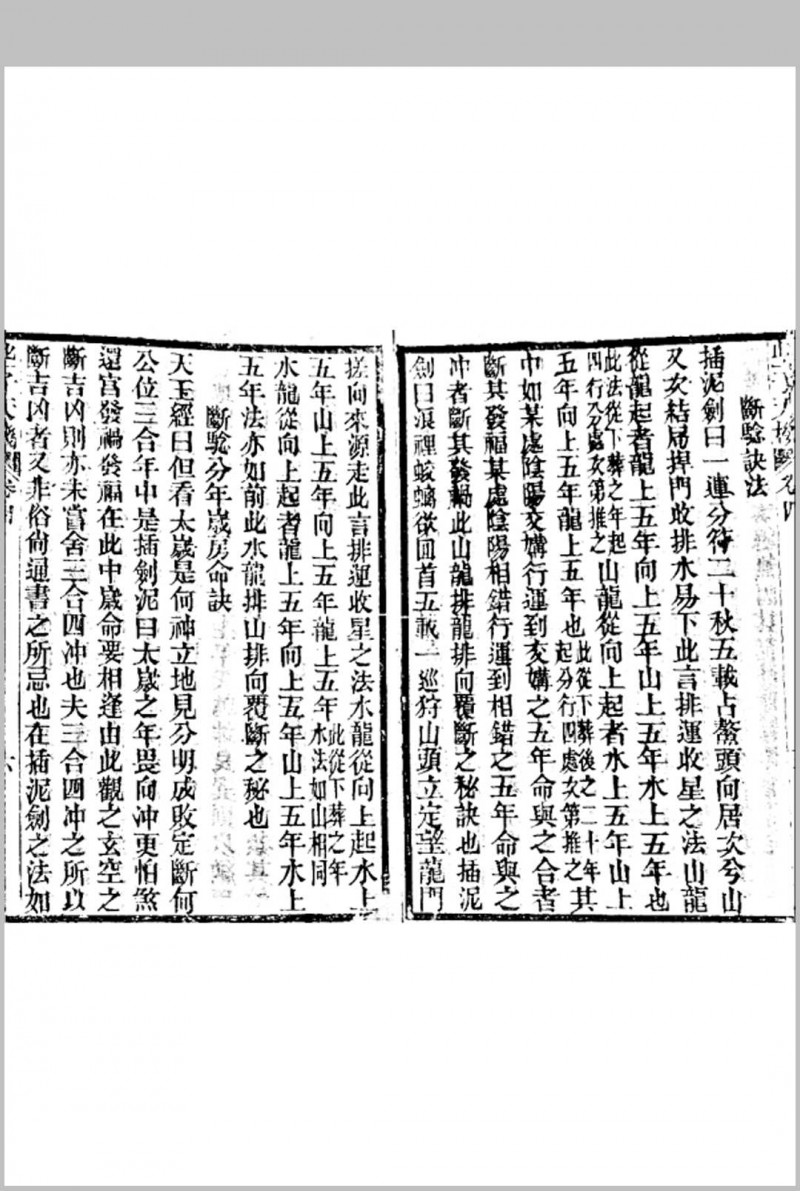 斷騐訣法
插泥劍曰一運分符二十秋五載占鰲頭向居次兮山
又次結局捍門收排水易下此言排運收星之法山龍
從龍起者龍上五年向上五年山上五年水上五年也
此法從下葬之年起四行分處次第推之山龍從向上起者水上五年山上
五年向上五年龍上五年也此從下葬後之二十年起分行四處次第推之其
中如某處陰陽交媾行運到交媾之五年命與之合者
斷其發福某處陰陽相錯行運到相錯之五年命與之
冲者斷其發禍此山龍排龍排向覆斷之秘訣也插泥
劍曰浪裡蛟螭欲回首五載一巡狩山頭立定望龍門
搓向來源走此言排運收星之法水龍從向上起水上
五年山上五年向上五年龍上五年此從下葬之年水法如山相同
水龍從向上起者龍上五年向上五年山上五年水上
五年法亦如前此水龍排山排向覆斷之秘也
斷騐分年歲房命訣
天玉經曰但看太歲是何神立地見分明成敗定斷何
公位三合年中是插劍泥曰太歲之年畏向冲更怕煞
還宮發禍發福在此中歲命要相逢由此觀之玄空之
斷吉凶則亦未嘗舍三合四冲也夫三合四冲之所以
斷吉凶者又非俗尚通書之所忌也在插泥劍之法如